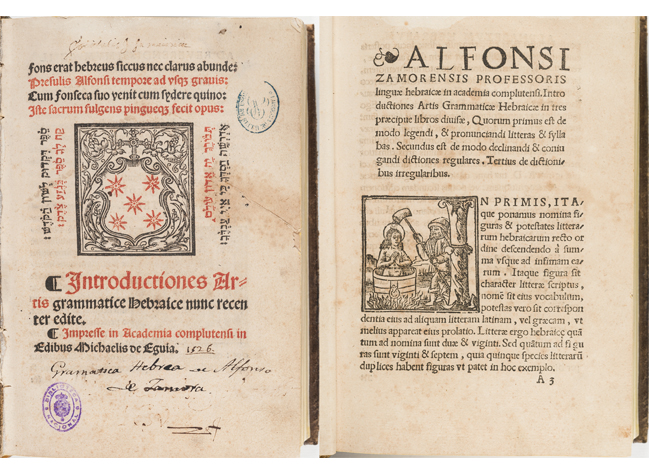 Fons erat hebreus siccus nec clarus abunde:
Presulis Alfonsi tempore ad vsq; grauis:
Cum Fonseca suo venit cum sydere quino:
Iste sacrum fulgens pingueq; fecit opus:
¶ Introductiones Ar-
tis grammatice Hebraice nunc recen
ter edite.
¶ Impresse in Academia complutensi in
Edibus Michaelis de Eguia. 1526.
Gramatica Hebrea de Alfonso
de Zamora
ALFONSI
ZAMORENSIS PROFESSORIS
linguæ hebraicæ in academia complutensi. Intro
ductiones Artis Grammaticæ Hebraicæ in tres
præcipue libros diuisæ, Quorum primus est de
modo legendi, & pronunciandi litteras & sylla
bas. Secundus est de modo declinandi & coniu
gandi dictiones regulares. Tertius de dictioni
bus irregularibus.
IN PRIMIS, ITA
que ponamus nomina fi
guras & potestates littera
rum hebraicarum recto or
dine descendendo à sum
ma vsque ad infimam ea
rum. Itaque figura sit
character litteræ scriptus,
nomē sit eius vocabulum,
potestas vero sit correspon
dentia eius ad aliquam litteram latinam, vel græcam, vt
melius appareat eius prolatio. Litteræ ergo hebraicę quā
tum ad nomina sunt duæ & viginti. Sed quātum ad figu
ras sunt viginti & septem, quia quinque species litterarū
duplices habent figuras vt patet in hoc exemplo.
A 3